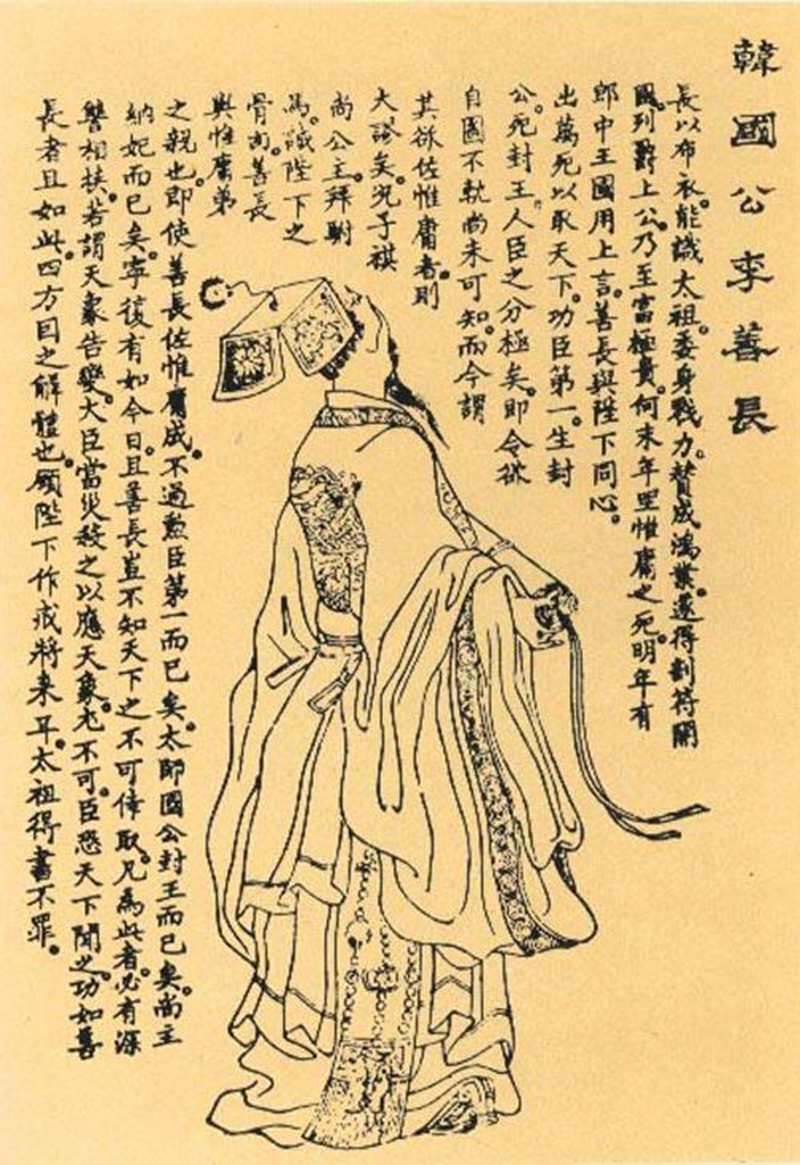 韓國公李善長
長以布衣。能識太祖。委身戮力。贊成鴻業。遂得剖符開
國。列爵上公。乃至富極貴。何末年里惟庸之死。明年有
郎中王國用上言。善長與陛下同心。
出萬死以取天下。功臣第一。生封
公。死封王。人臣之分極矣。即令欲
自圖不軌尚未可知。而今謂
其欲佐惟庸者。則
大謬矣。況子祺
尚公主。拜駙
馬。誠陛下之
骨肉。善長
與惟庸弟
之親也。即使善長佐惟庸成。不過勲臣第一而已矣。太師國公封王而已矣。尚主
納妃而已矣。寧復有如今日。且善長豈不知天下之不可倖取。凡為此者。必有深
讐相挾。若謂天象告變。大臣當災。殺之以應天象。尤不可。臣恐天下聞之。功如善
長者且如此。四方因之解體也。願陛下作戒將來耳。太祖得書不罪。